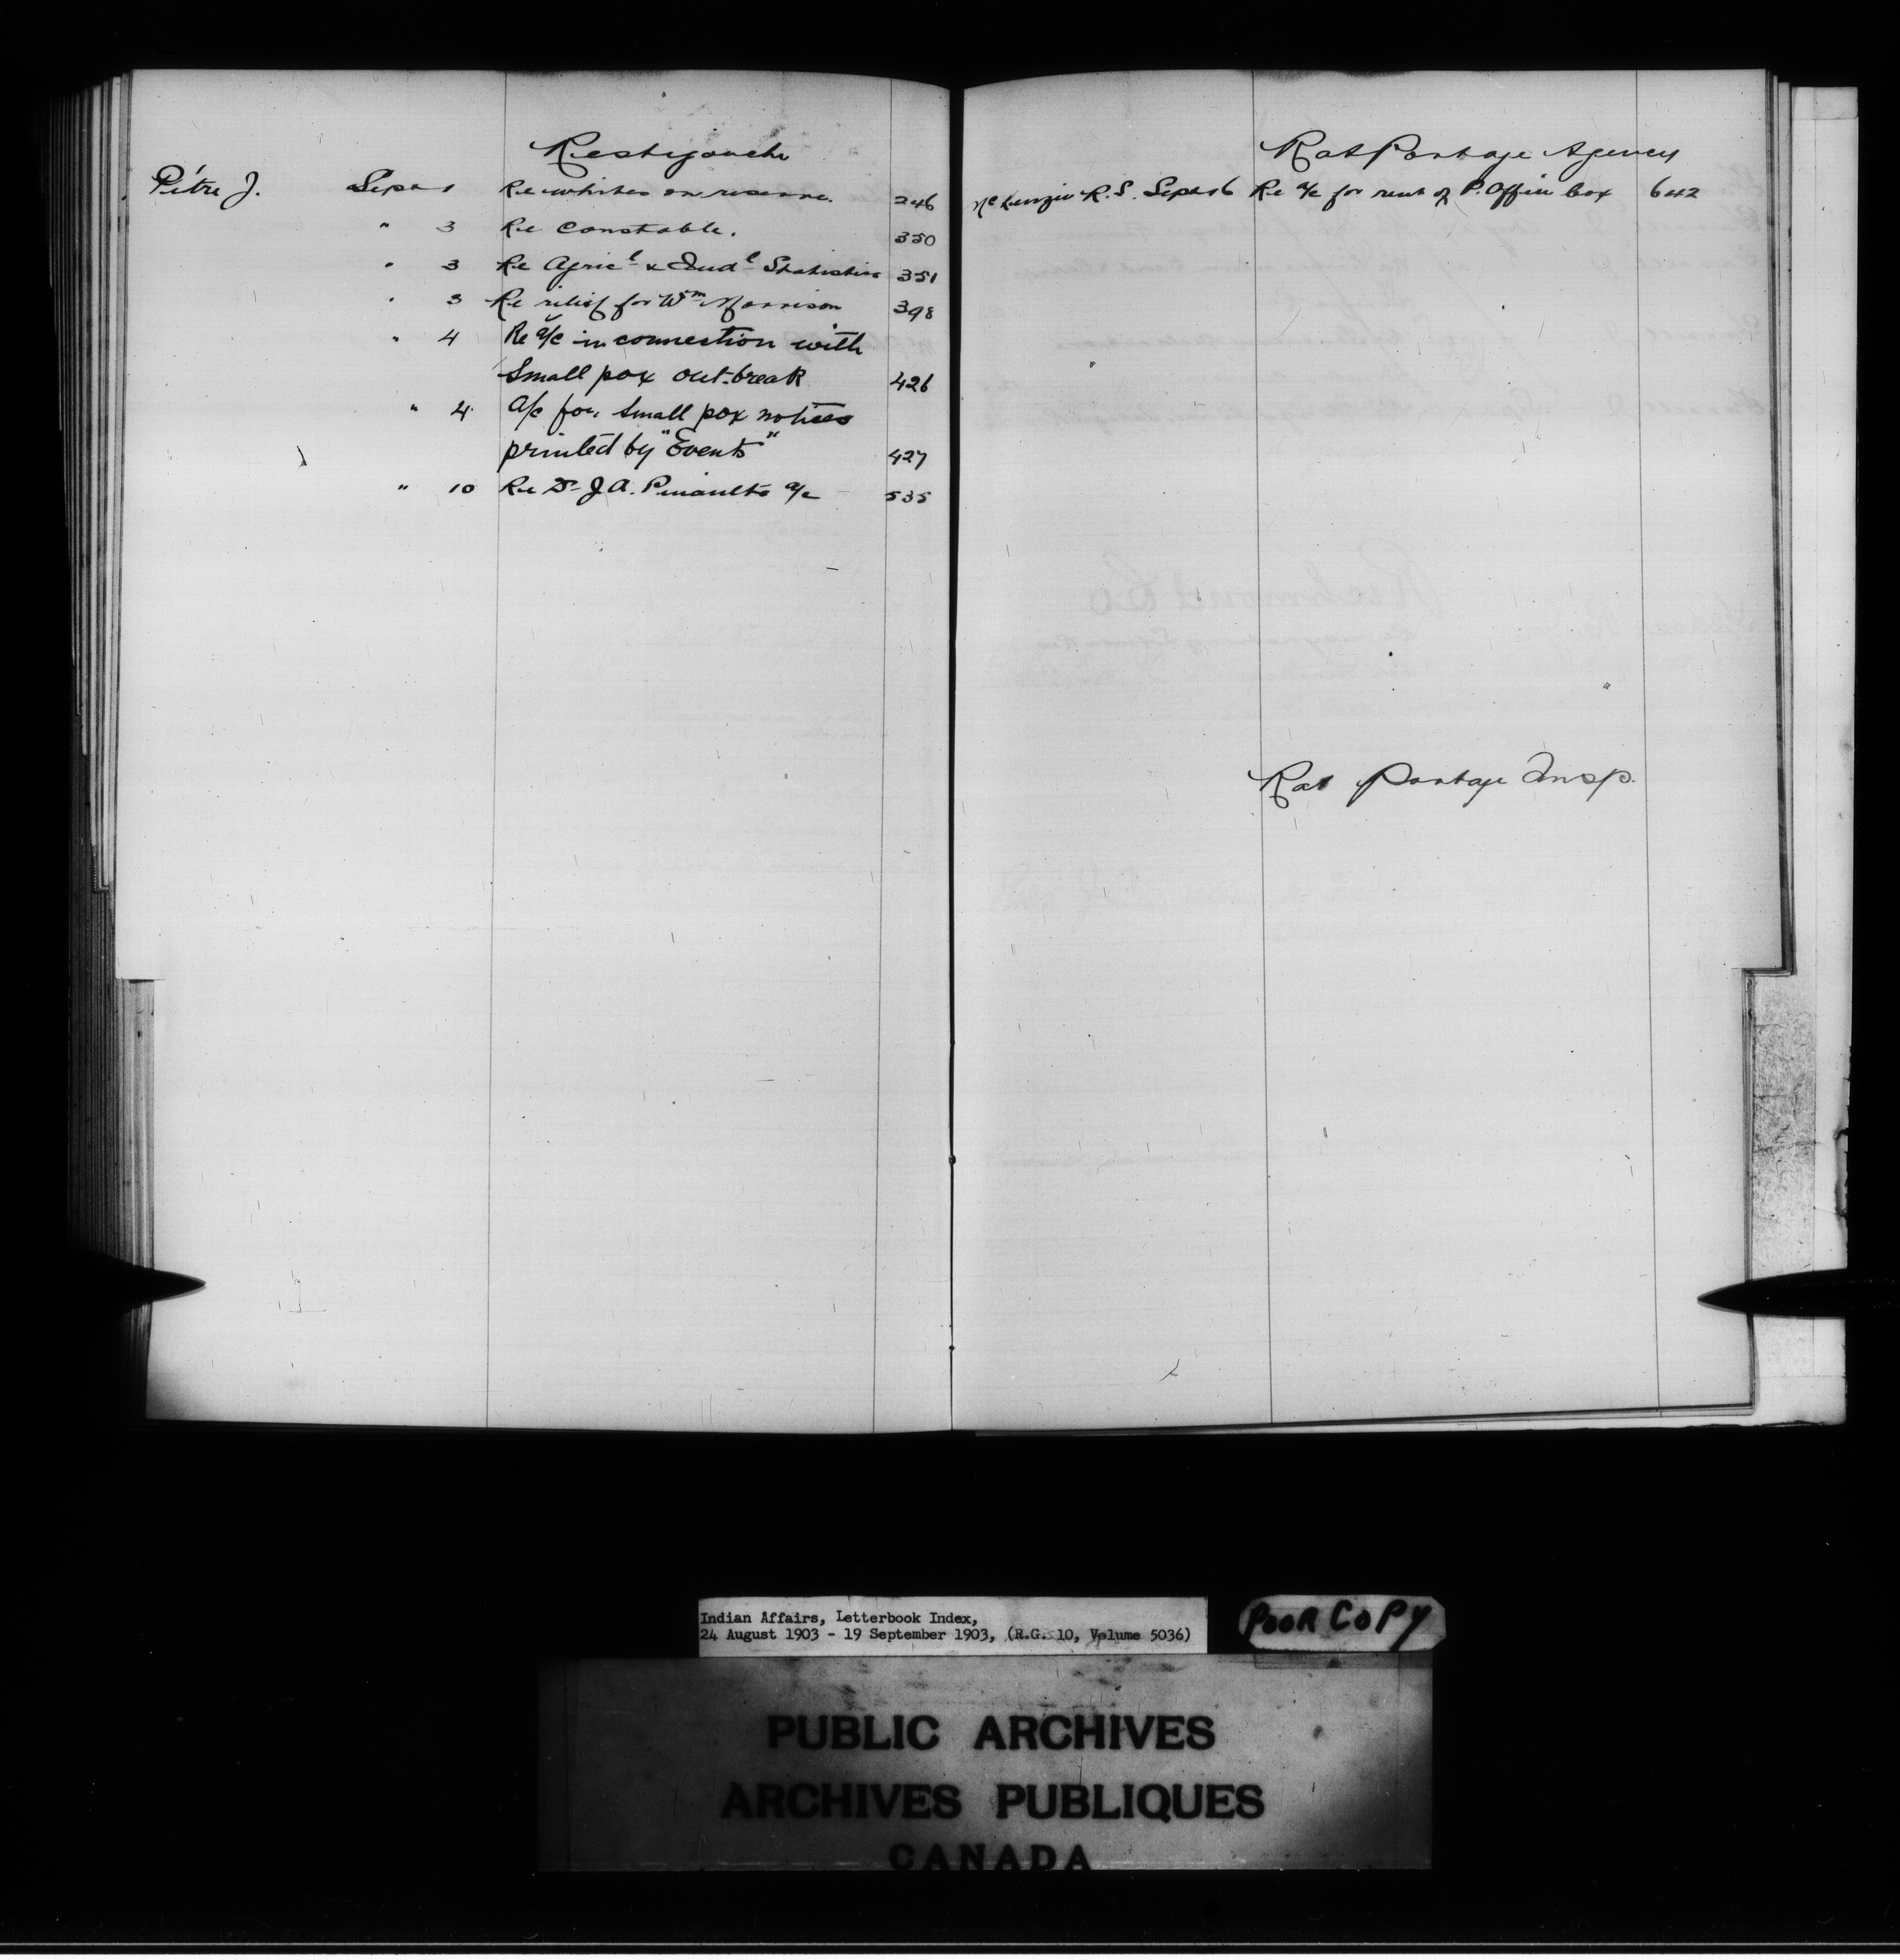 Restigouche
Pitre J. Sept 1 Re whites on reserve. 246
" 3 Re Constable. 350
" 3 Re Agricl & Indl Statistics 351
" 3 Re relief for Wm Morrison 398
" 4 Re a/c in connection with
Small pox out-break 426
" 4 A/c for small pox notices
printed by "Events" 427
" 10 Re Dr J A. Pinaults a/c 535
Rat Portage Agency
McKenzie R. S. Sept 16 Re a/c for rent of P. Office box 642
Rat Portage Insp.
Indian Affairs, Letterbook Index,
24 August 1903 - 19 September 1903, (R.G. 10, Volume 5036)
POOR COPY
PUBLIC ARCHIVES
ARCHIVES PUBLIQUES
CANADA